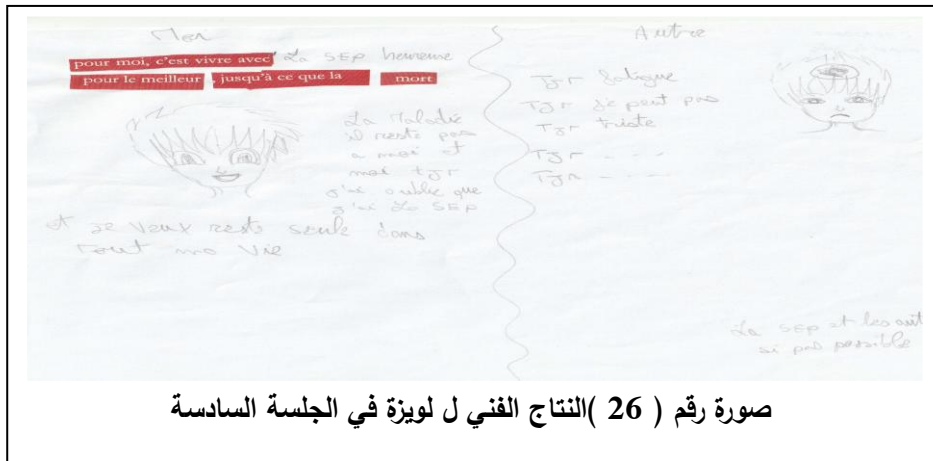 Moi
pour moi, c'est vivre avec La SEP heureuse
pour le meilleur , jusqu'à ce que la mort
La Maladie
il reste pas
a moi et
moi tjr
j'ai oublie que
j'ai La SEP
et je veux reste seule dans
Tout ma Vie
Autre
Tjr fatigue
Tjr je peut pas
Tjr triste
Tjr - - -
Tjr - - -
La SEP et les aut
si pas possible
صورة رقم ( 26 )النتاج الفني ل لويزة في الجلسة السادسة